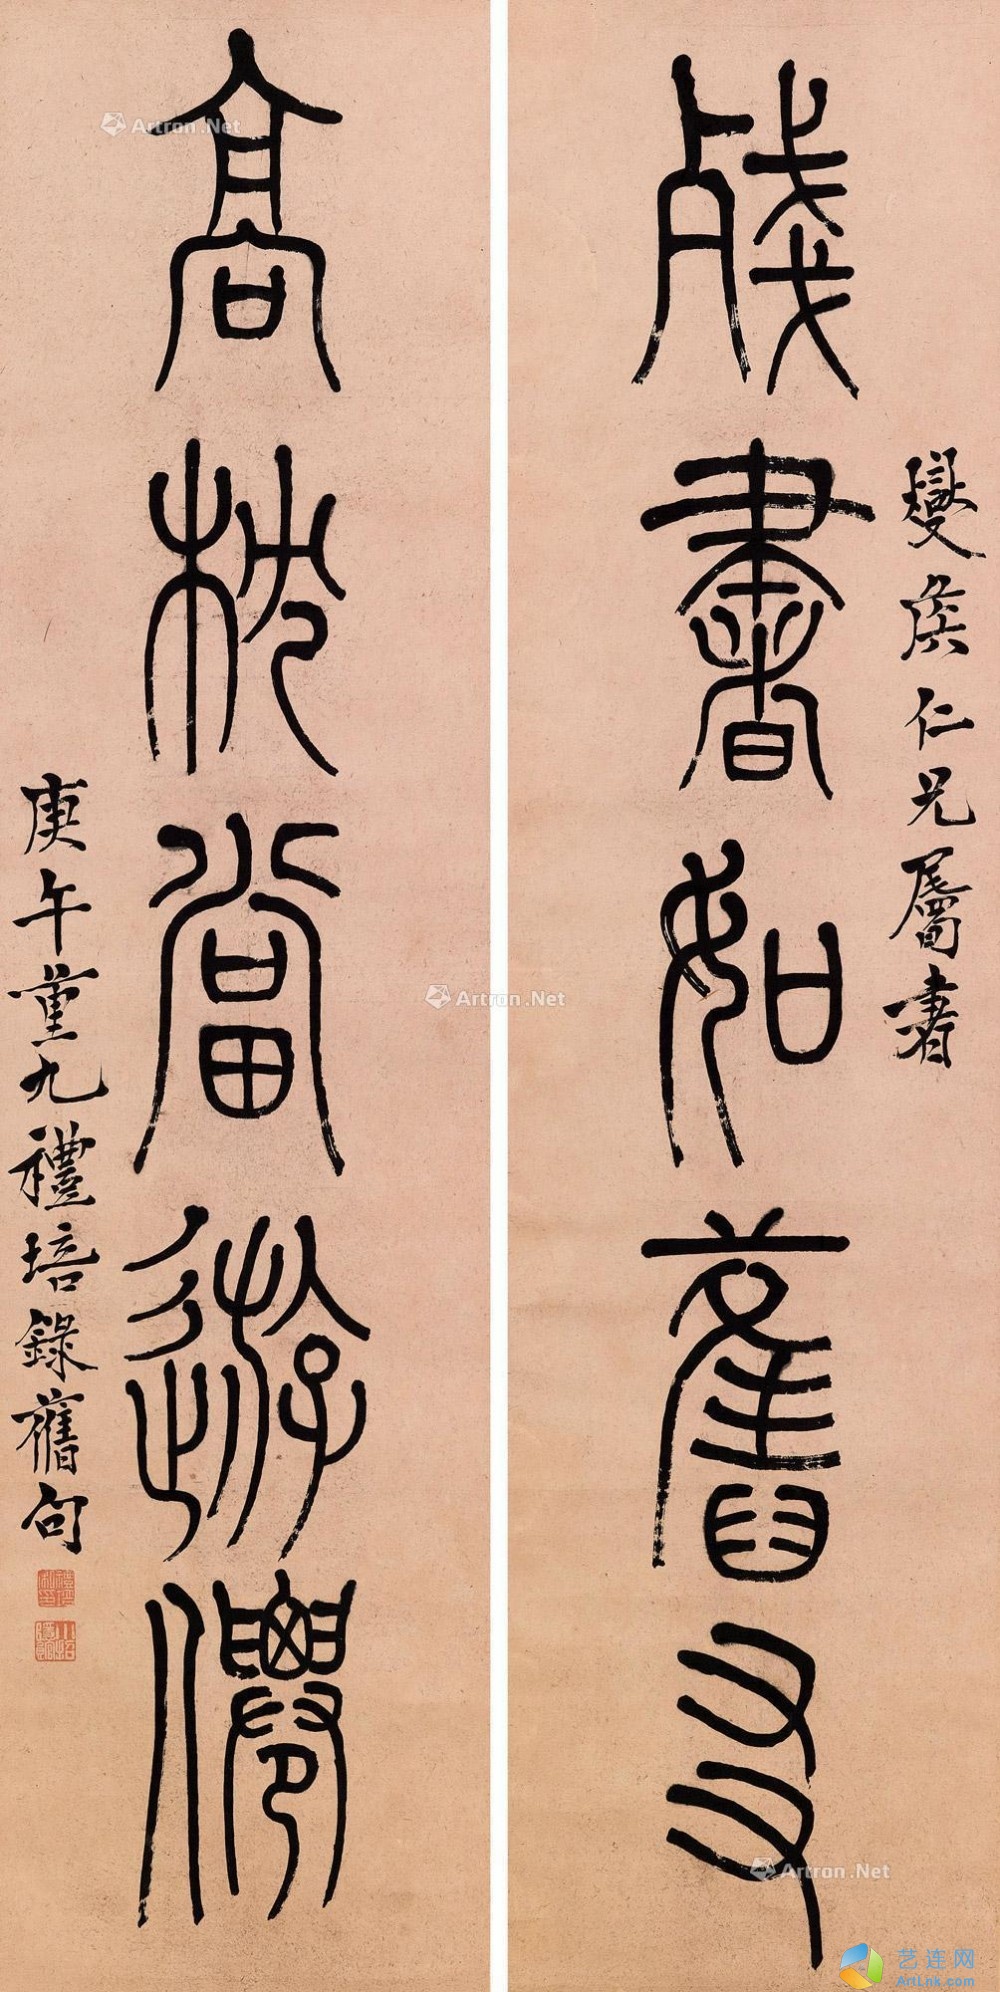 燮侯仁兄屬書
殘書如舊友
高枕當遊僊
庚午重九禮培錄舊句
Artron.Net
Artron.Net
Artron.Net
艺连网
ArtLnk.com